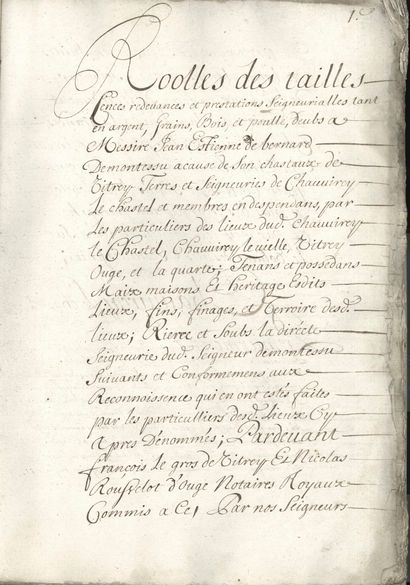 1.
Roolles des tailles
Cences redevances et prestations Seigneurialles tant
en argent, Grains, Bois, et poulle, deubs a
Messire Jean Estienne de bernard
Demontessu a cause de Son chastaux de
Vitrey Terres et Seigneuries de Chauvirey
Le chastel et membres en despendans, par
Les particuliers des lieux dud. Chauvirey
le Chastel, Chauvirey le vielle, Vitrey
Ouge, et la quarte; Tenans et possedans
Maix maisons Et heritage Esdits
Lieux, fins, finages, et Terroire desd.
lieux; Rieree et Soubs la directe
Seigneurie dud. Seigneur demontessu
Suivants et Conformemens aux
Reconnoissence qui en ont estés faites
par les particulliers desd. Lieux Cy
Apres Dénommés; Pardevant
françois Le gros de Vitrey Et Nicolas
Rousselot d'Ouge Notaires Royaux
Commis a Ce, Par nos Seigneurs